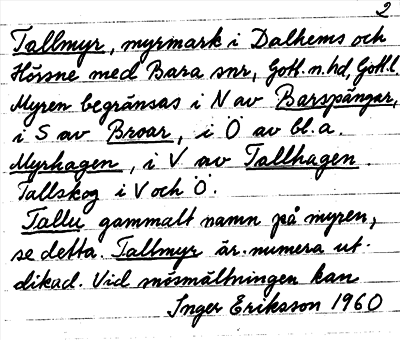 2
Tallmyr, myrmark i Dalhems och
Hörsne med Bara snr, Gotl. n. hd, Gotl. l.
Myren begränsas i N av Barspängar,
i S av Broar, i Ö av bl.a.
Myrhagen, i V av Tallhagen.
Tallskog i V och Ö.
Tallu gammalt namn på myren,
se detta. Tallmyr är numera ut-
dikad. Vid
kan
Inger Eriksson 1960